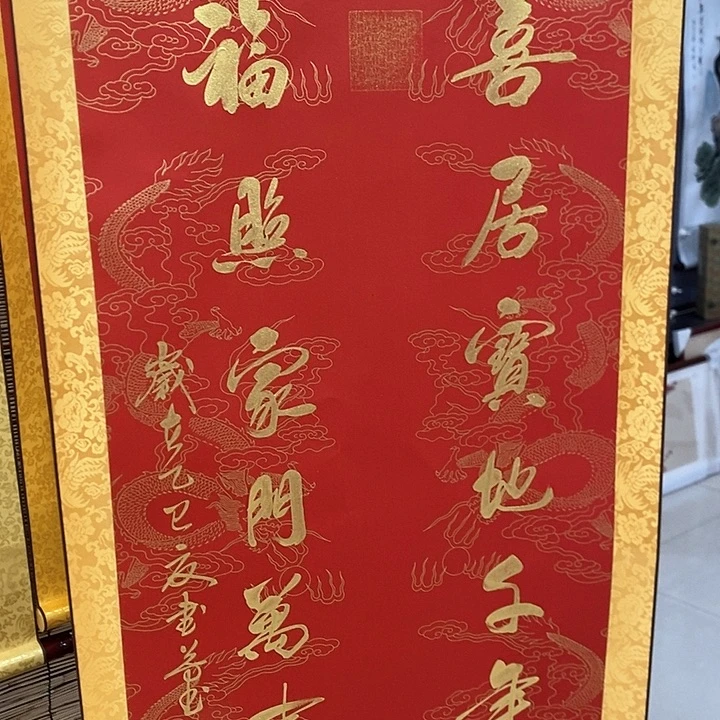 喜居寶地千年
福照家門萬事
歲在乙巳夏書